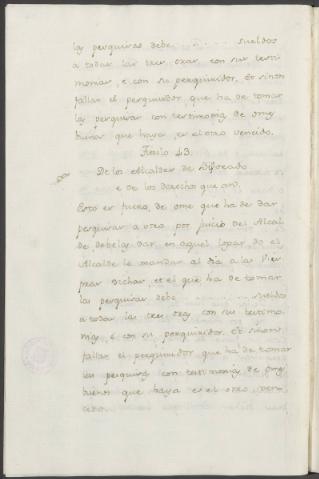 las perquiras debe . . . . sueldos
a todar las tres oxas con sus testi
monias, e con su perquiridor, et si non
fallar el perquiridor, que ha de tomar
las perquiras con testimonias de omes
buenos que haya, es el otro vencido.
Titulo 43.
De los Alcaldes de
e de los derechos que an.
Esto es fuero, de ome que ha de dar
perquiras a otro por juicio del Alcal
de debelas dar en aquel logar, do el
Alcalde le mandar al dia a las
dichas, et el que ha de tomar
las perquiras debe sueldos
a todas las tres con sus testimo
nias, e con su perquiridor. Et si non
fallar el perquiridor, que ha de tomar
las perquiras con testimonias de omes
buenos que haya es el otro ven
cido.